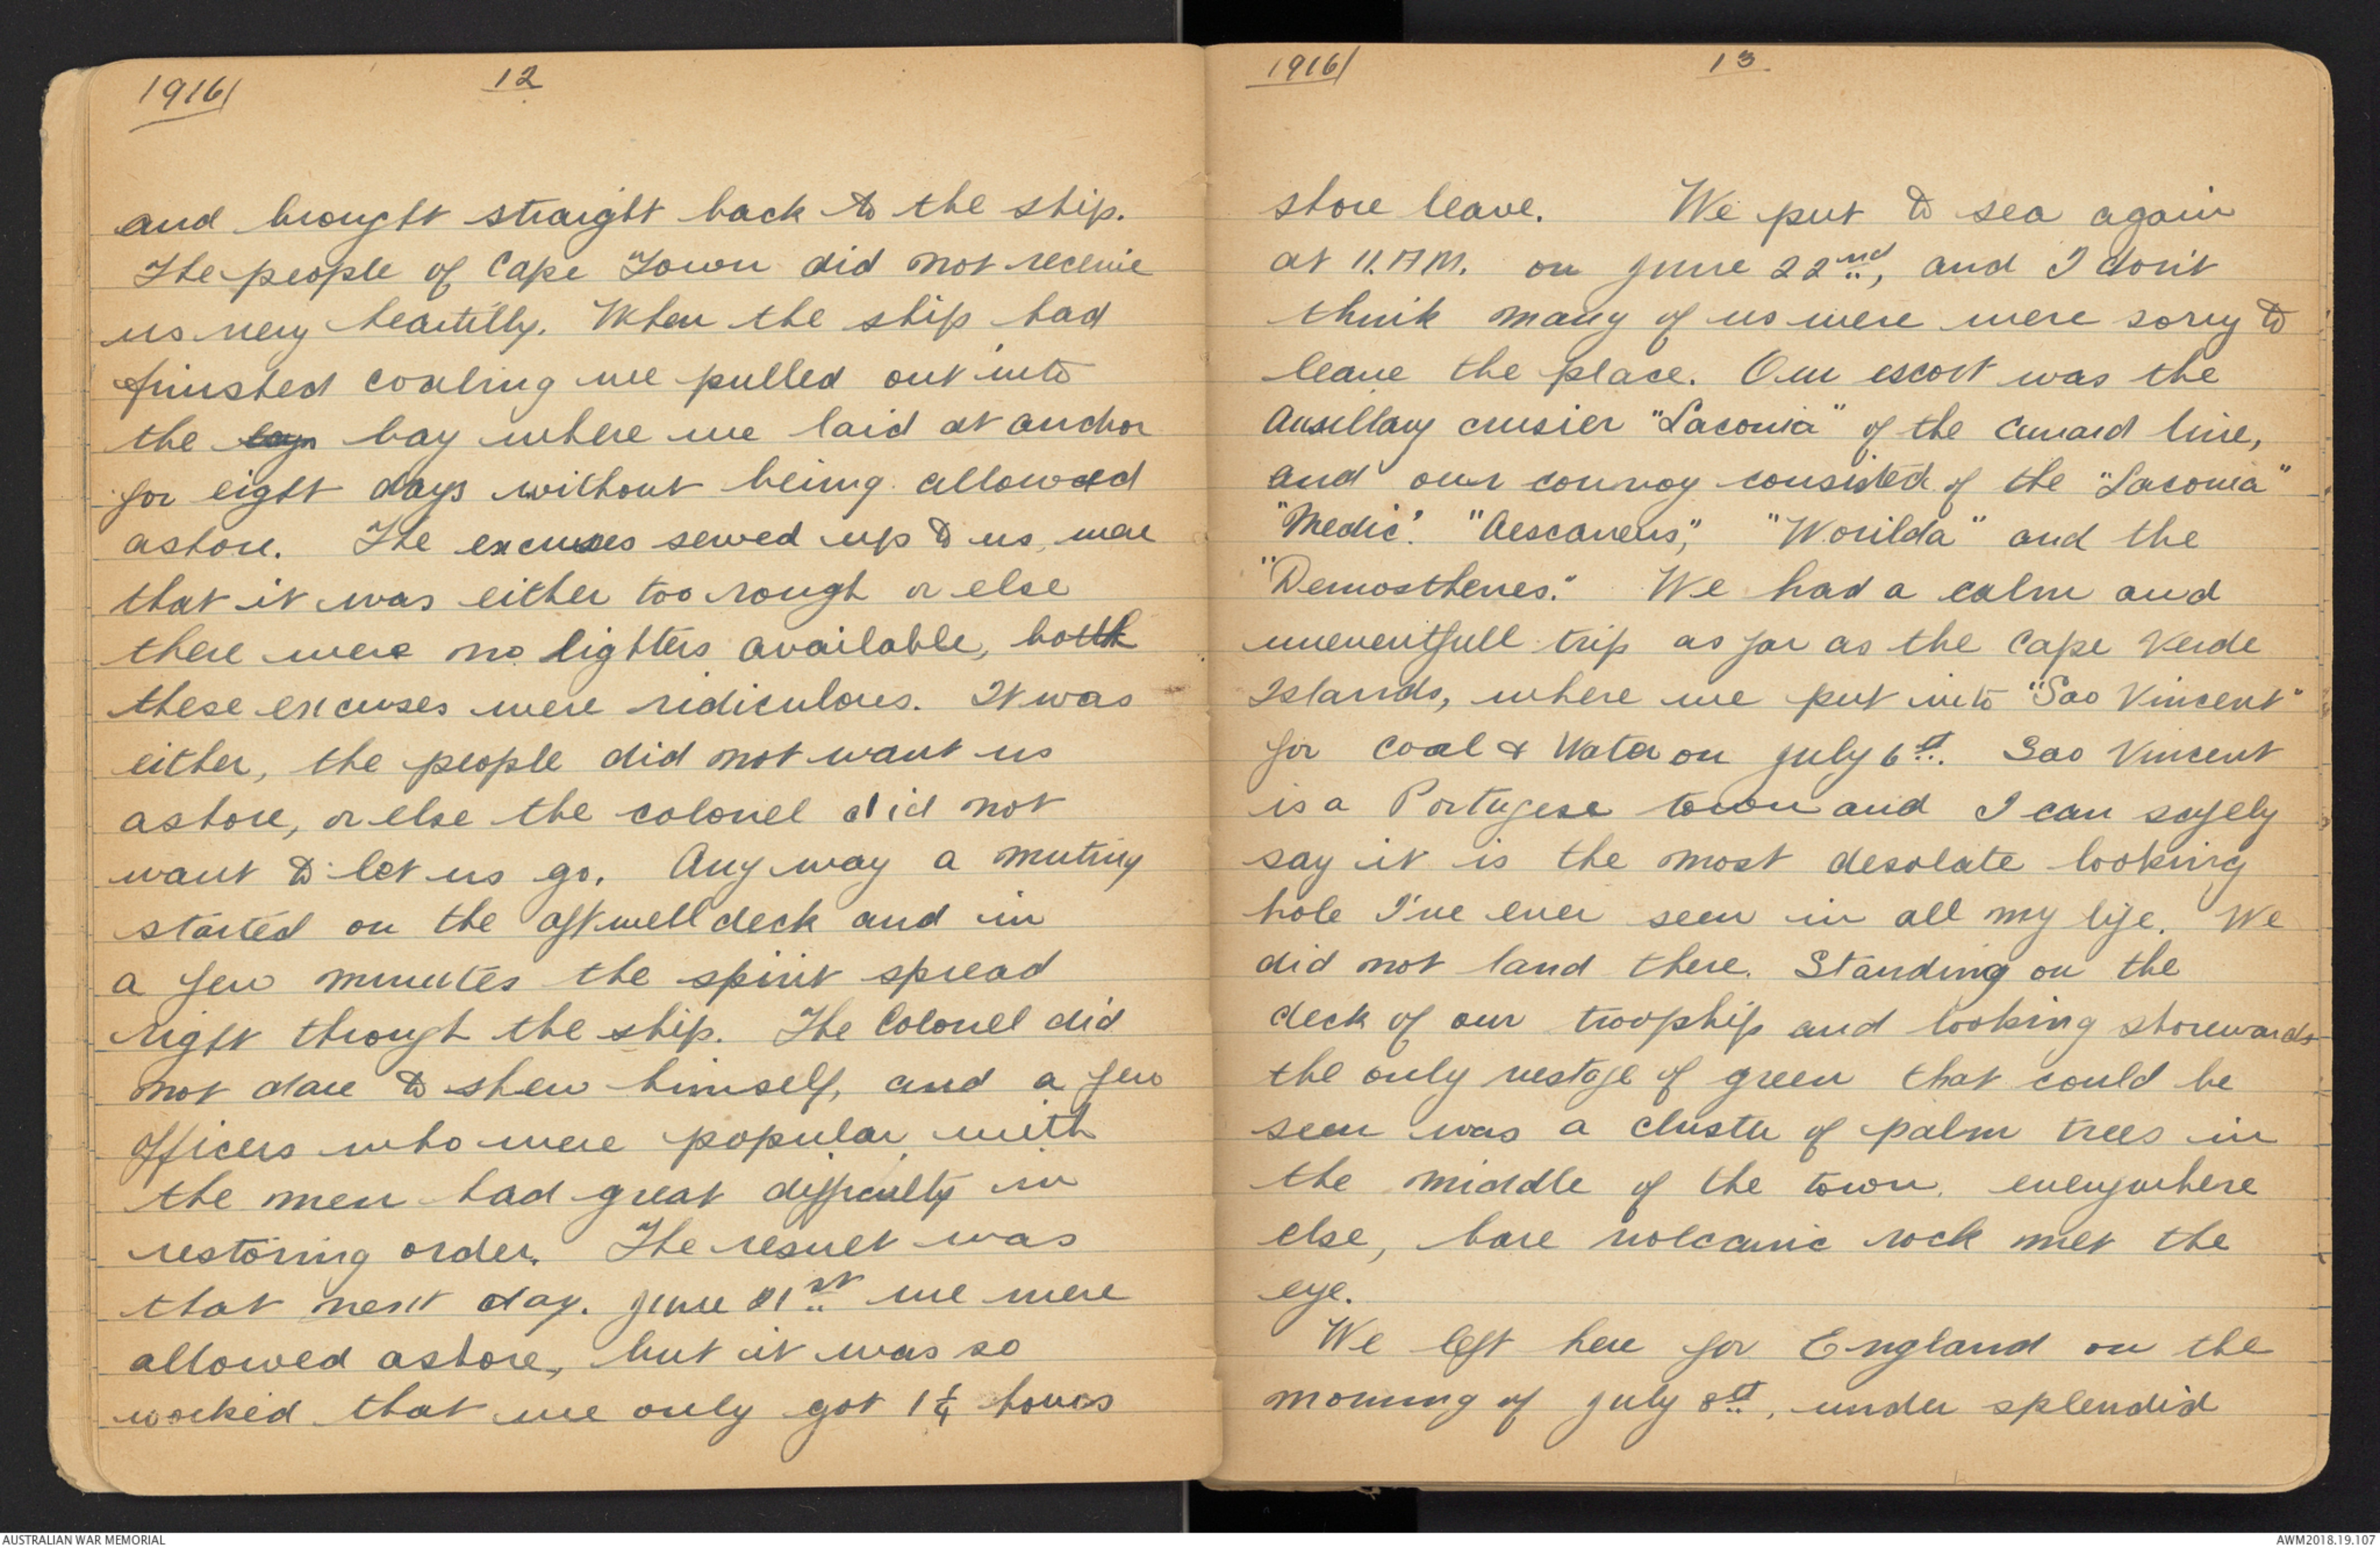 1916/
12
and brought straight back to the ship.
The people of Cape Town did not receive
us very heartilly. When the ship had
finished coaling we pulled out into
the bay where we laid at anchor
for eight days without being allowed
ashore. The excuses served up to us, were
that it was either too rough or else
there were no lighters available, both
these excuses were ridiculous. It was
either, the people did not want us
ashore, or else the colonel did not
want to let us go. Any way a mutiny
started on the aft well deck and in
a few minutes the spirit spread
right through the ship. The Colonel did
not dare to shew himself, and a few
officers who were popular with
the men had great difficulty in
restoring order. The result was
that next day. June 21st we were
allowed ashore, but it was so
worked that we only got 1¼ hours
1916/
13
shore leave. We put to sea again
at 11.AM. on June 22nd, and I don't
think many of us were were sorry to
leave the place. Our escort was the
Auxillary crusier "Laconia" of the Cunard line,
and our convoy consisted of the "Laconia"
"Medic". "Aescaneus", "Worilda" and the
"Demosthenes." We had a calm and
uneventfull trip as far as the Cape Verde
Islands, where we put into "Sao Vincent"
for Coal & Water on July 6th. Sao Vincent
is a Portugese town and I can safely
say it is the most desolate looking
hole I've ever seen in all my life. We
did not land there. Standing on the
deck of our troopship and looking shorewards
the only vestage of green that could be
seen was a cluster of palm trees in
the middle of the town, everywhere
else, bare volcanic rock met the
eye.
We left here for England on the
morning of July 8th, under splendid
AUSTRALIAN WAR MEMORIAL
AWM2018.19.107